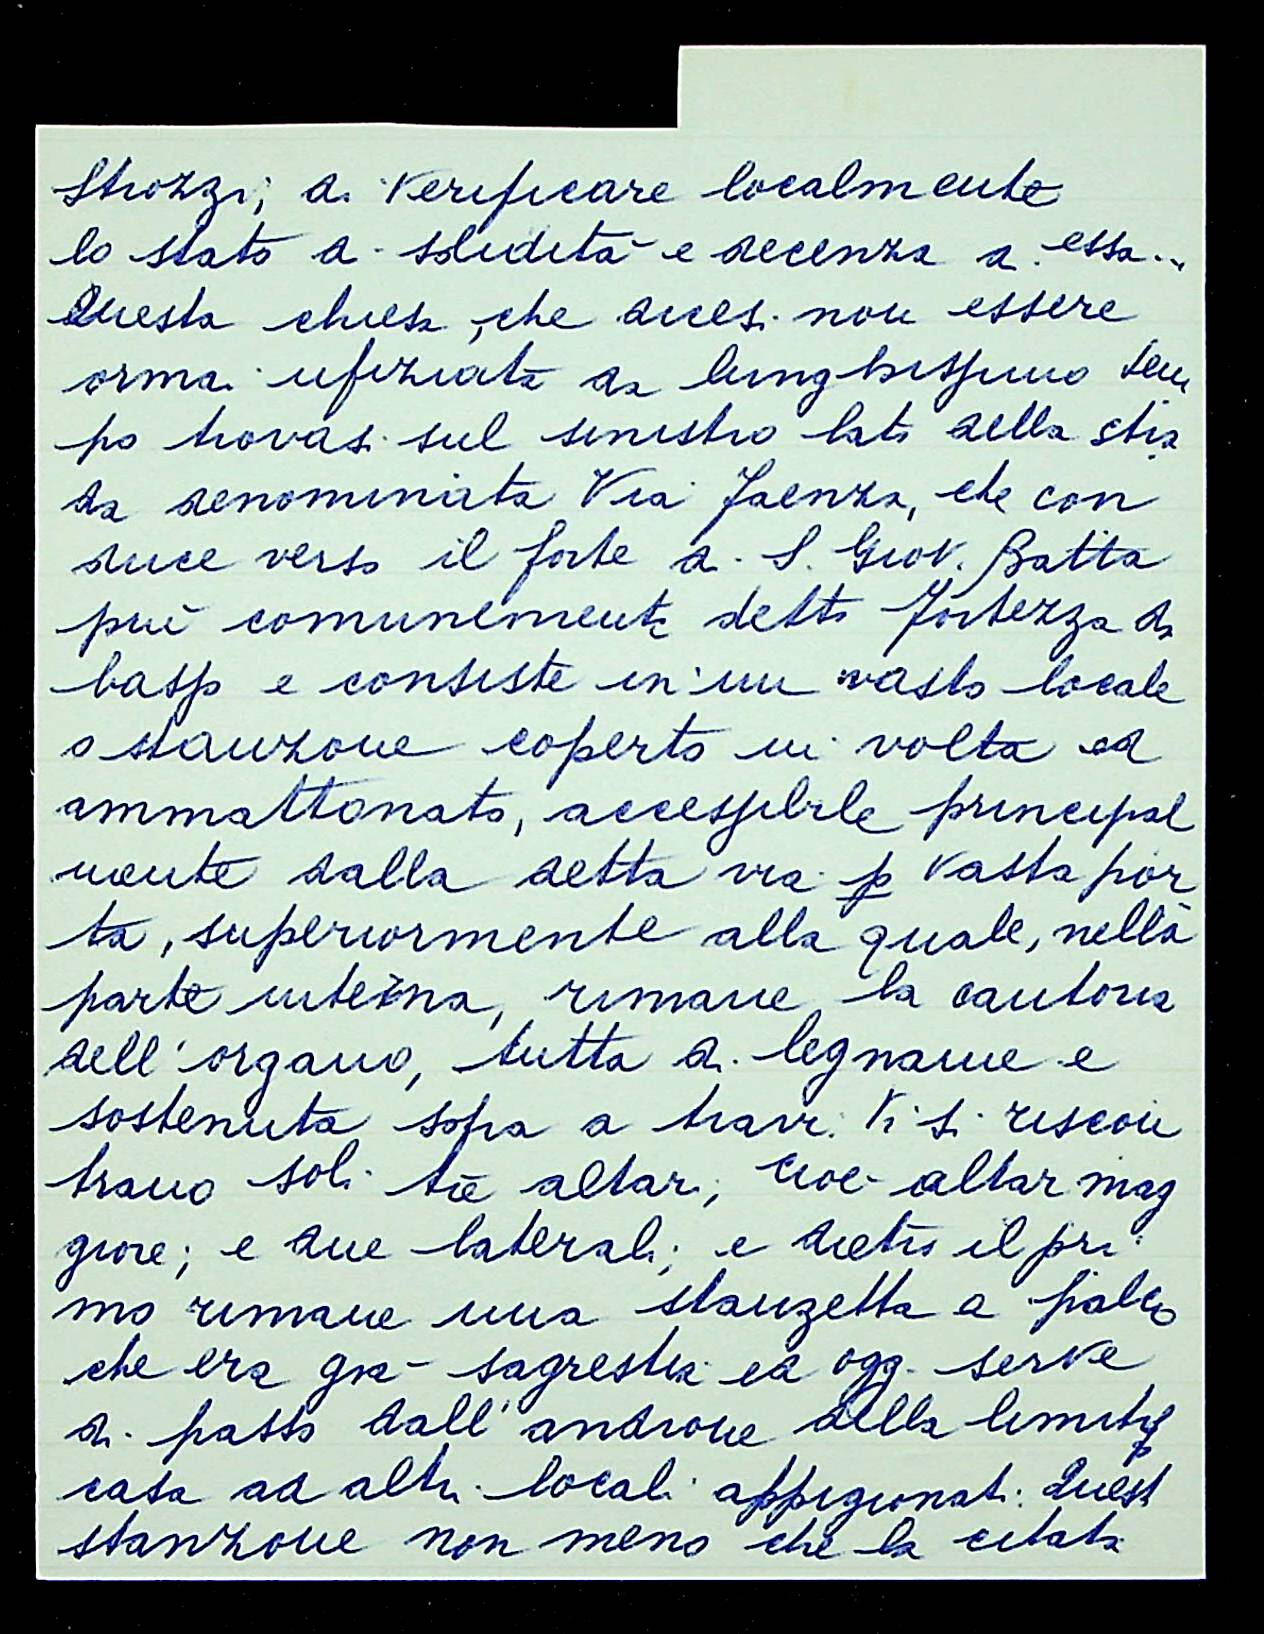 Strozzi; di verificare localmente
lo stato di solidità e decenza di essa..
Questa chiesa, che dicesi non essere
ormai ufiziata da lunghissimo tem
po trovasi sul sinistro lato della stra
da denominata Via Faenza, che con
duce verso il forte di S. Giov. Batta
più comunemente detto Fortezza da
basso e consiste in un vasto locale
o stanzone coperto in volta ed
ammattonato, accessibile principal
mente dalla detta via p vasta por
ta, superiormente alla quale, nella
parte interna, rimane la cantoria
dell'organo, tutta di legname e
sostenuta sopra a travi. Vi si riscon
trano soli tre altari, cioè altar mag
giore; e due laterali; e dietro il pri
mo rimane una stanzetta a palco
che era già sagrestia ed oggi serve
di passo dall'androne della limitrof
casa ad altri locali appigionati. Quest
stanzone non meno che la citata